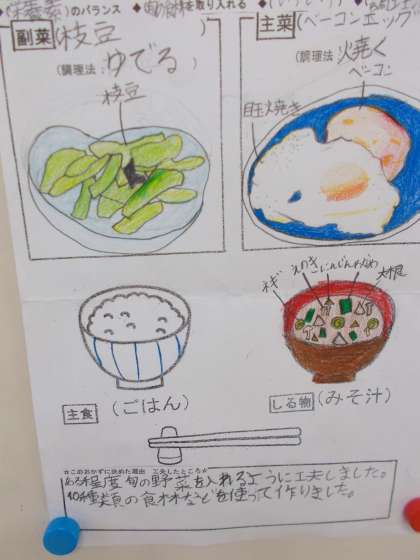 栄養素のバランス ◆旬の食材を取り入れる
副菜(枝豆)
(調理法:ゆでる)
枝豆
主菜(ベーコンエッグ
(調理法 焼く
ベーコン
目玉焼き
ネギ えのき にんじん わかめ 大根
主食 (ごはん)
しる物(みそ汁)
☆このおかずに決めた理由 工夫したところ☆
ある程度旬の野菜を入れるように工夫しました。
10種類の食材などを使って作りました。